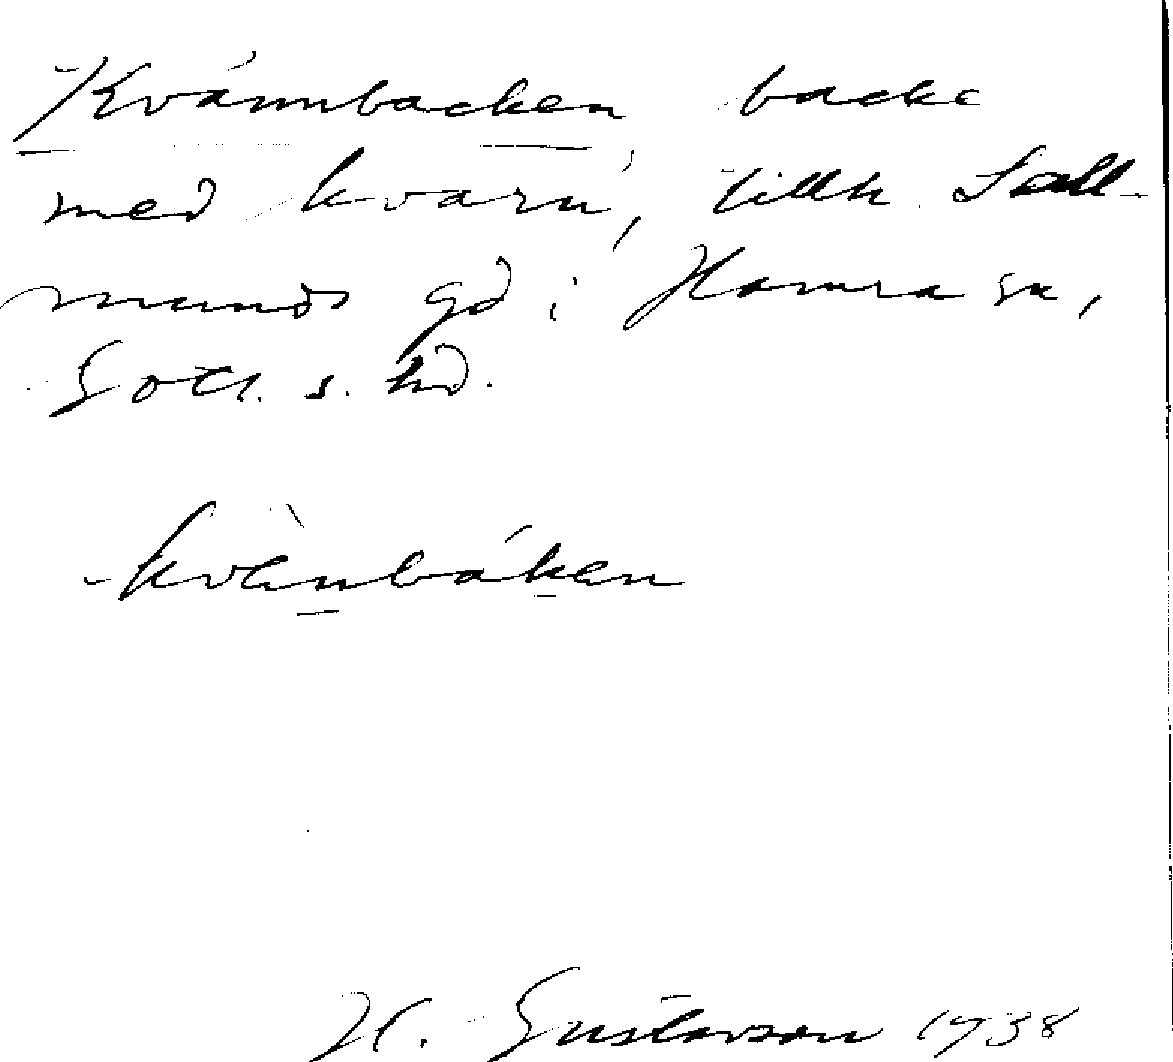 Kvännbacken backe
med kvarn, tillh. Sall-
munds gd i Hamra sn,
Gotl. s. hd.
kvänbaken
H. Gustavson 1938